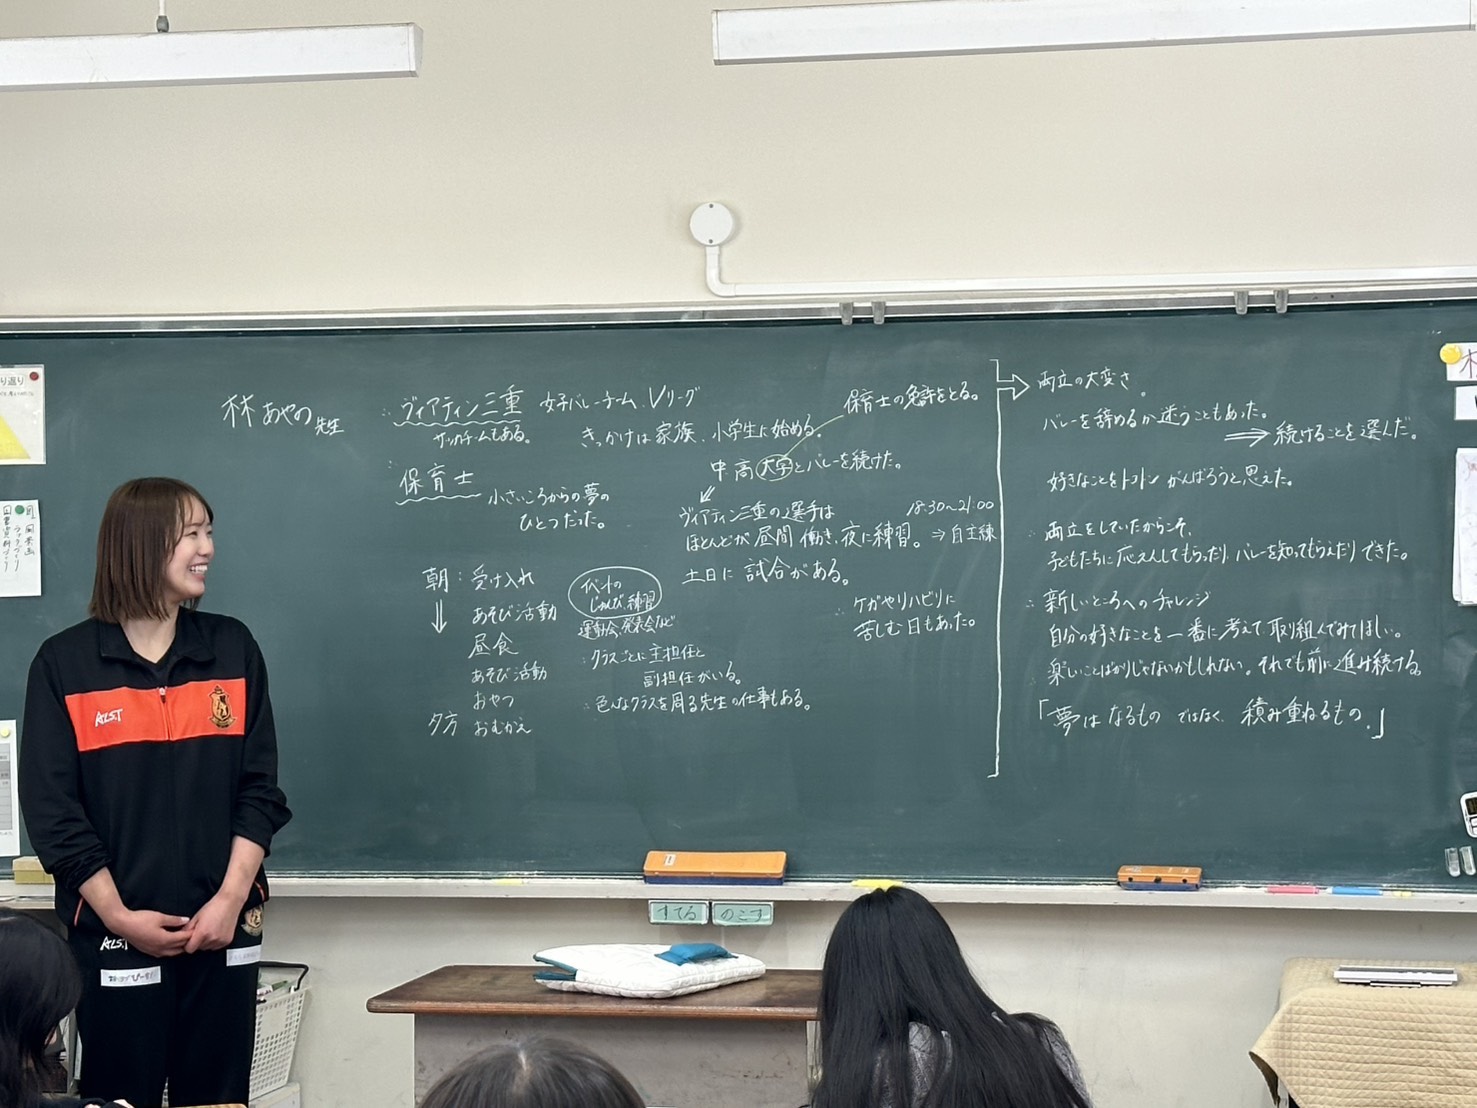 林 あやの 先生
ヴィアティン三重 女子バレーチーム Vリーグ
サッカーチームもある。
きっかけは家族、小学生に始める。
保育士の免許をとる。
中 高 大学とバレーを続けた。
保育士
小さいころからの夢の
ひとつだった。
ヴィアティン三重の選手は
18:30〜21:00
ほとんどが昼間働き、夜に練習。⇒自主練
土日に試合がある。
ケガやリハビリに
苦しむ日もあった。
朝:受け入れ
あそび活動
昼食
あそび活動
おやつ
夕方 おむかえ
イベントの
じゅんび、練習
運動会、発表会など
クラスごとに主担任と
副担任がいる。
色んなクラスを周る先生の仕事もある。
両立の大変さ。
バレーを辞めるか迷うこともあった。
⇒続けることを選んだ。
好きなことをトコトンがんばろうと思えた。
両立をしていたからこそ、
子どもたちに応えんしてもらったり、バレーを知ってもらえたりできた。
新しいところへのチャレンジ
自分の好きなことを一番に考えて、取り組んでみてほしい。
楽しいことばかりじゃないかもしれない。それでも前に進み続ける。
「夢は なるもの ではなく、積み重ねるもの。」
ALS.T
ALS.T
すてる
のこす